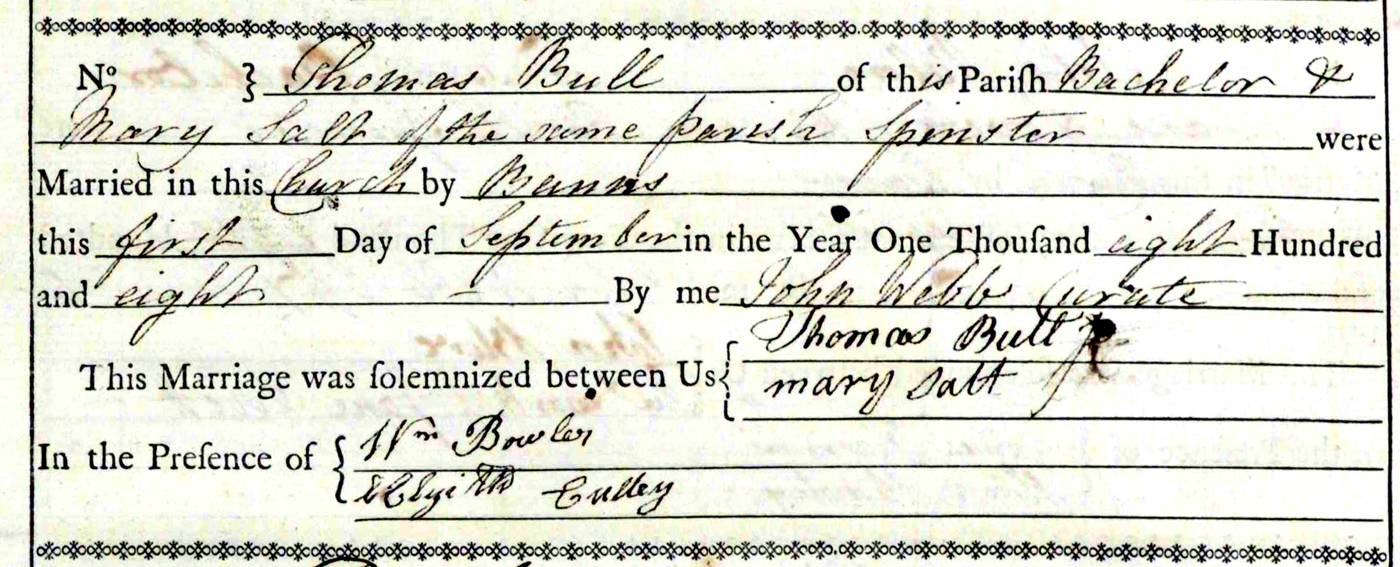 No. } Thomas Bull of this Pariſh Bachelor &
Mary Salt of the same parish Spinster were
Married in this Church by Banns
this first Day of September in the Year One Thouſand eight Hundred
and eight — By me John Webb Curate —
Thomas Bull
This Marriage was ſolemnized between Us {
mary Salt
Wm Bowler
In the Preſence of {